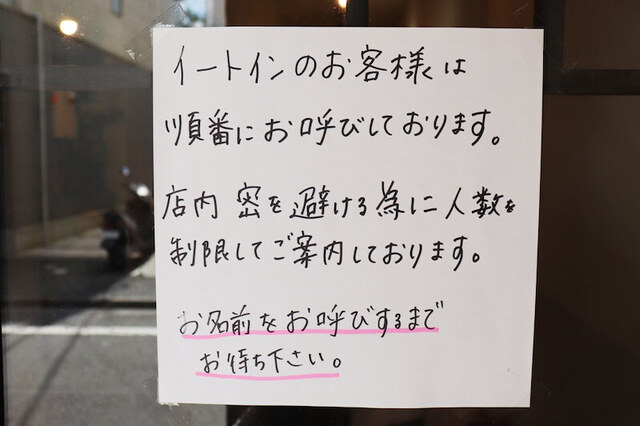 イートインのお客様は
順番にお呼びしております。
店内 密を避ける為に人数を
制限してご案内しております。
お名前をお呼びするまで
お待ち下さい。